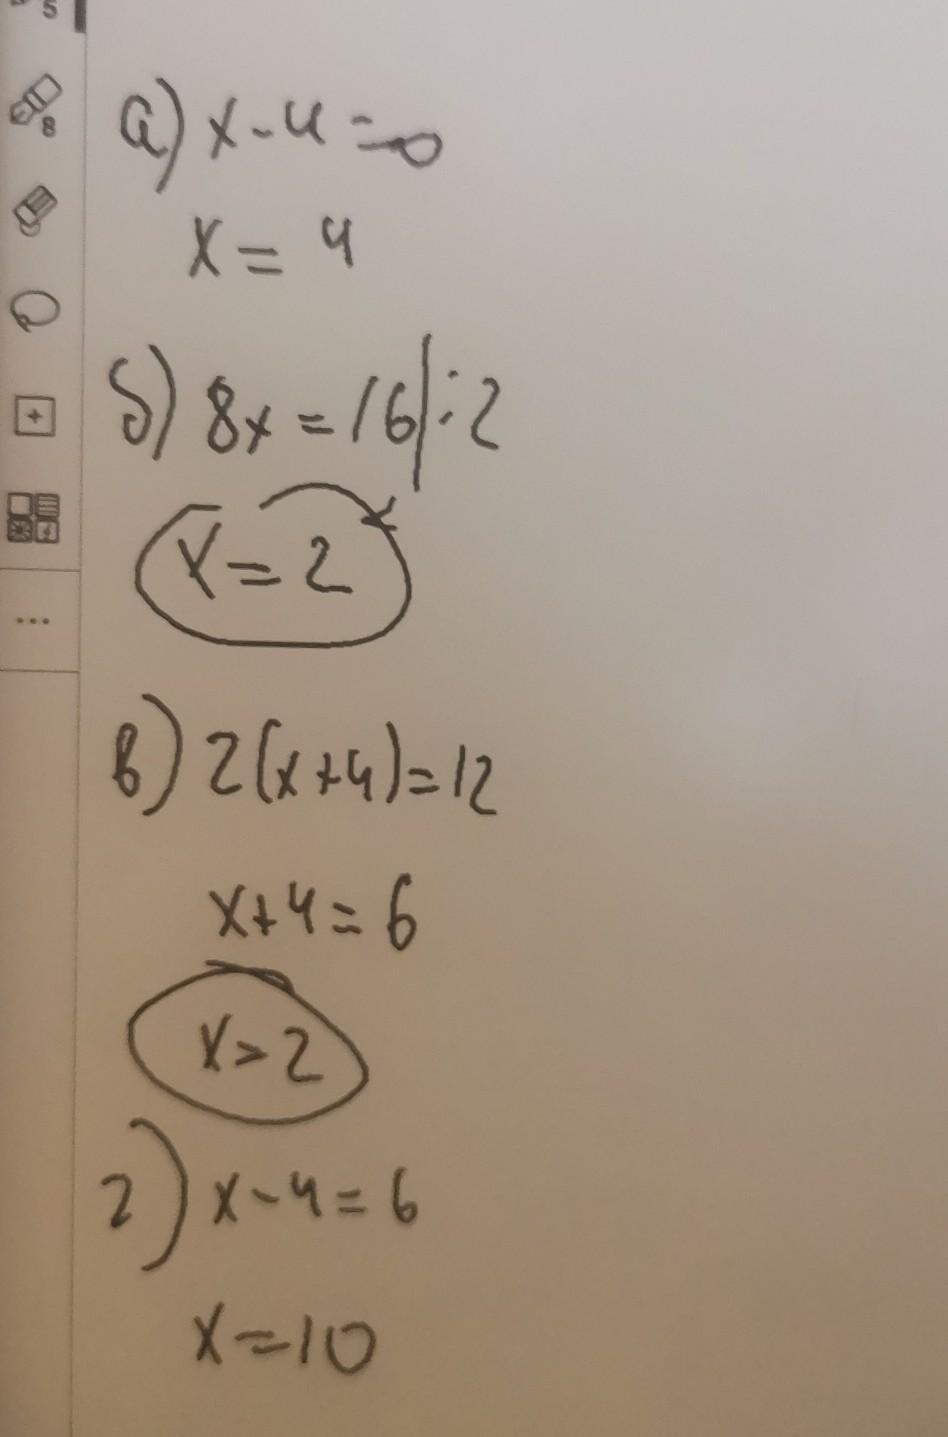 5
8
а) x-4=0
x = 4
б) 8x = 16|:2
x = 2
в) 2(x+4)=12
x+4=6
x=2
г) x-4=6
x=10